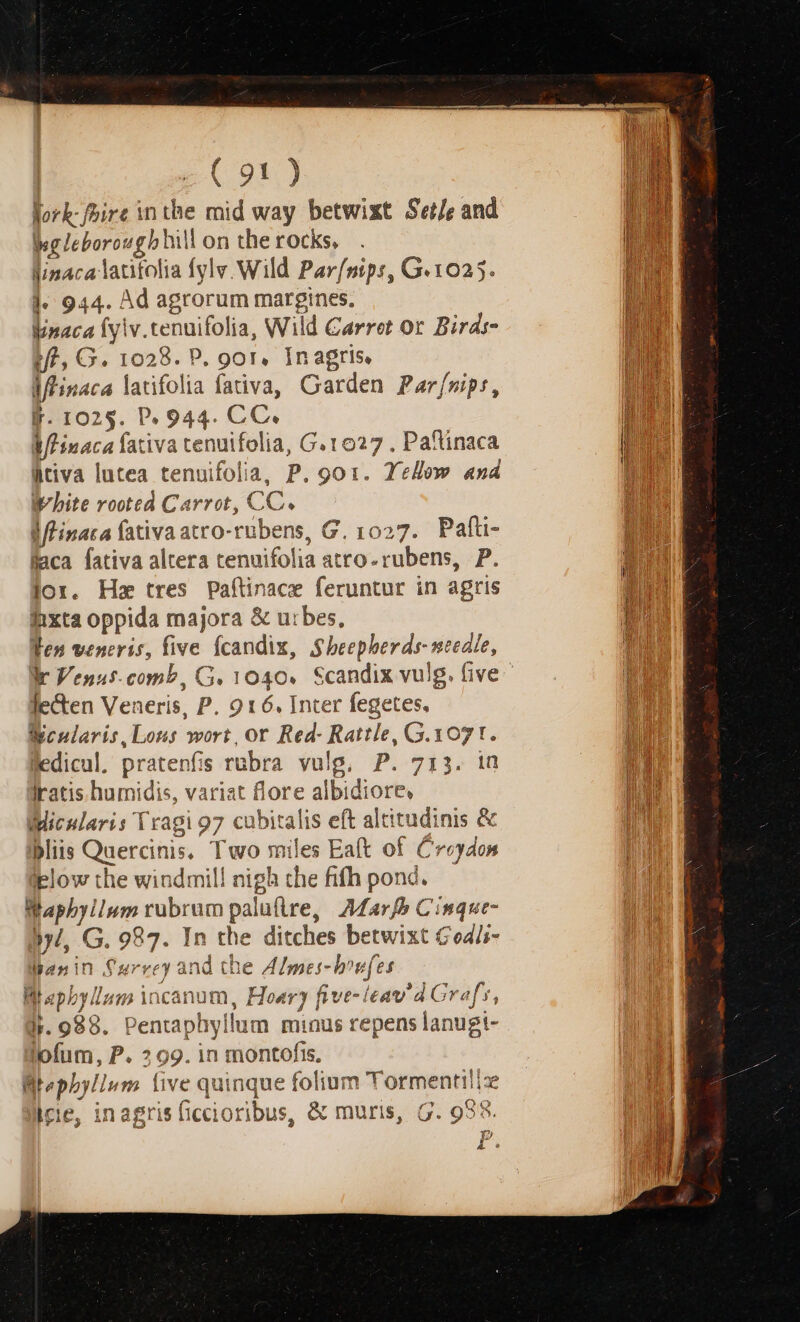 ( 91 )
York-ſhire in the mid way betwixt Setle and
leborough hill on the rocks, .
inaca latifolia ſylv. Wild Parſnips, G. 1025.
944. Ad agrorum margines.
inaca ſylv. tenuifolia, Wild Carrot or Birds-
G. 1028. P. 901. In agris.
ſtinaca latifolia ſativa, Garden Parſnips,
1025. P. 944. CC.
ſtinaca ſativa tenuifolia, G. 1027. Paſtinaca
ativa lutea tenuifolia, P. 901. Yellow and
White rooted Carrot, CC.
ſtinaca ſativa atro-rubens, G. 1027. Paſti-
naca ſativa altera tenuifolia atro-rubens, P.
901. Hæ tres paſtinacæ feruntur in agris
juxta oppida majora & urbes.
ten veneris, five ſcandix, Sheepherds-needle,
or Venus-comb, G. 1040. Scandix vulg. five
Pecten Veneris, P. 916. Inter ſegetes.
icularis, Lous wort, or Red-Rattle, G. 1071.
Pedicul. pratenſis rubra vulg. P. 713. in
pratis humidis, variat flore albidiore.
dicularis Tragi 97 cubitalis eſt altitudinis &
foliis Quercinis. Two miles Eaſt of Croydon
below the windmill nigh the fifh pond.
taphyllum rubrum paluſtre, Marſh Cinque-
foyl, G. 987. In the ditches betwixt Godli-
man in Surrey and the Almes-houſes
taphyllum incanum, Hoary five-leav'd Graſs,
G. 988. Pentaphyllum minus repens lanugi-
noſum, P. 399. in montoſis.
taphyllum ſive quinque folium Tormentillæ
facie, in agris ſiccioribus, & muris, G. 988.
P.